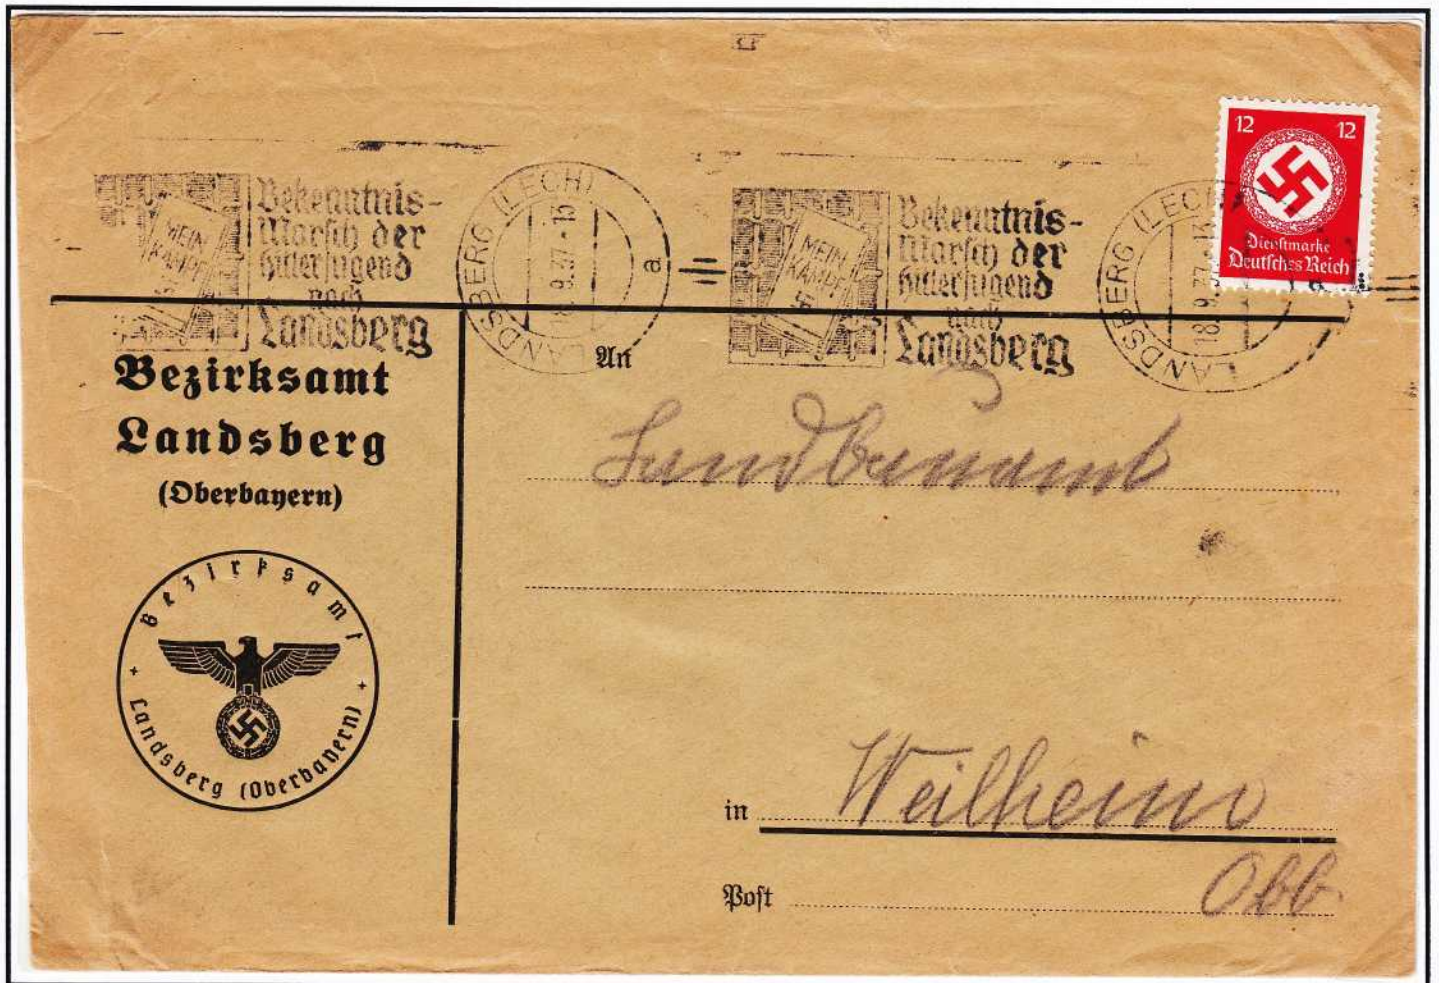 Bekenntnis-
Marsch der
Hitlerjugend
nach
Landsberg
MEIN
KAMPF
LANDSBERG (LECH)
18.9.37.-13
a
Bekenntnis-
Marsch der
Hitlerjugend
nach
Landsberg
MEIN
KAMPF
LANDSBERG (LECH)
18.9.37.-13
12 12
Dienstmarke
Deutsches Reich
Bezirksamt
Landsberg
(Oberbayern)
Bezirksamt
Landsberg (Oberbayern)
An
Landbauamt
in Weilheim
Post Obb.